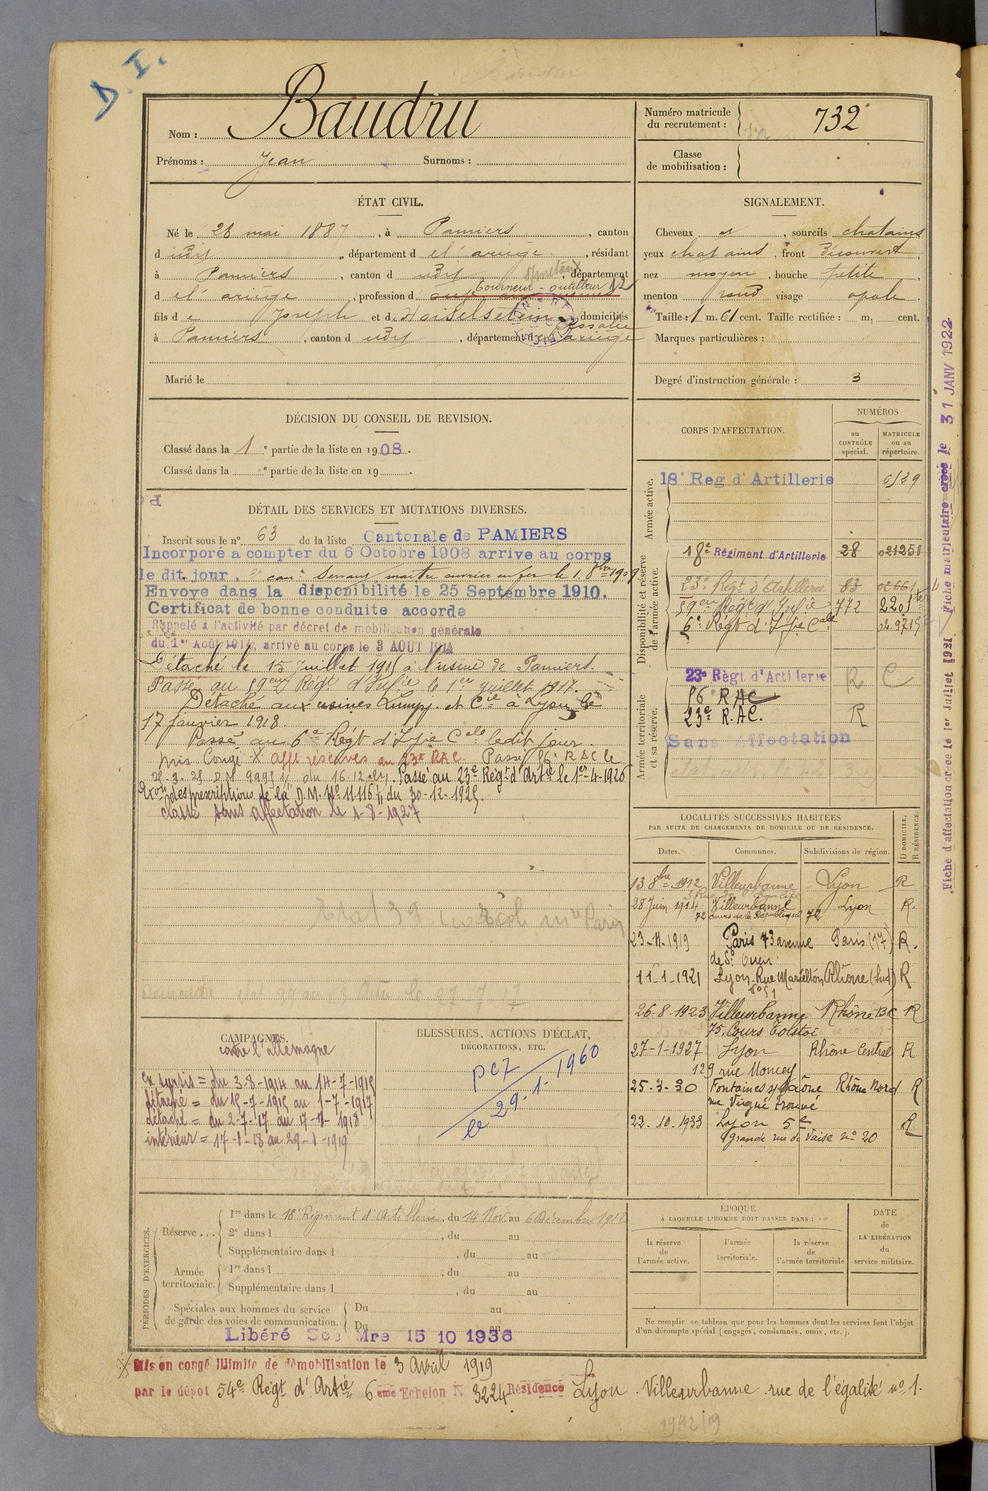 D. I.
Baudru
Nom :
Prénoms : Jean Surnoms :
Numéro matricule du recrutement : 732
Classe de mobilisation :
ÉTAT CIVIL.
Né le 28 mai 1887, à Pamiers, canton
d udit, département d e l'ariège, résidant
à Pamiers, canton d udit, département
d e l'ariège, profession d tourneur-outilleur
fils d e Joseph et d e domiciliés
à Pamiers, canton d udit, département d Ariège
Marié le
SIGNALEMENT.
Cheveux et, sourcils chatains
yeux chatains, front découvert
nez moyen, bouche petite
menton rond visage ovale.
Taille : 1 m. 61 cent. Taille rectifiée : m. cent.
Marques particulières :
Degré d'instruction générale : 3
DÉCISION DU CONSEIL DE REVISION.
Classé dans la 1e partie de la liste en 1908.
Classé dans la e partie de la liste en 19
DÉTAIL DES SERVICES ET MUTATIONS DIVERSES.
Inscrit sous le n° 63 de la liste Cantonale de PAMIERS
Incorporé a compter du 6 Octobre 1908 arrive au corps
le dit jour. 2e cani Servant, maitre ouvrier en fer le 1. 8bre 1909
Envoye dans la disponibilité le 25 Septembre 1910.
Certificat de bonne conduite accorde
Rappelé à l'activité par décret de mobilisation générale
du 1er Août 1914, arrivé au corps le 3 AOUT 1914
Détaché le 15 juillet 1915 à l'usine de Pamiers.
Passé au 59eme Régt d'Infie le 1er juillet 1917.
Détaché aux usines et Cie à Lyon le
17 janvier 1918.
Passé au 6e Regt d'Ifie Cale ledit jour.
pris Congé X afft réserves au 23e RAC Passé 16e RAC le
du 16-12-24. Passé au 23e Régt d'Artie le 1er-4-1926
prescriptions de la D.M. N° 11116 du 30-12-1925.
classé sans affectation le 1-8-1927
CORPS D'AFFECTATION.
NUMÉROS
au CONTRÔLE spécial.
MATRICULE ou au répertoire.
Armée active.
18e Reg d'Artillerie
Disponibilité et réserve de l'armée active.
18e Régiment d'Artillerie 28 021251
23e Regt d'Artillerie 83
59eme Regt d'Infie 772
6e Régt d'Ifie Cale
Armée territoriale et sa réserve.
23e Règt d'Artillerie R C
16e RAC
23e R.A.C. R
Sans Affectation
Fiche d'affectation créée le 1er Juillet 1921 Fiche matriculaire créée le 31 JANV 1922
LOCALITÉS SUCCESSIVES HABITÉES
PAR SUITE DE CHANGEMENTS DE DOMICILE OU DE RÉSIDENCE.
Dates. Communes. Subdivisions de région. D DOMICILE, R RÉSIDENCE.
13 8bre 1912 Villeurbanne Lyon R
28 Juin 1914 Villeurbanne Lyon R.
72 cours de la République 72
23-11-1919 Paris 73 avenue Paris (17) R.
de St Ouen
11-1-1921 Lyon-Rue Marietton Rhône (Sud) R
26-8-1923 Villeurbanne Rhône R
75, Cours Tolstoï
27-1-1927 Lyon Rhône Central R
129 rue Moncey
25-3-30 Fontaines s/ Saône Rhône Nord R
22-10-1933 Lyon 5e R
Grande rue de Vaise n° 20
CAMPAGNES.
contre l'Allemagne
du 3-8-1914 au 14-7-1915
détaché = du 15-7-1915 au 1-7-1917
détaché = du 2-7-17 au 17-1-1918
intérieur = 17-1-18 au 29-1-1919
BLESSURES, ACTIONS D'ÉCLAT,
DÉCORATIONS, ETC.
le 29-1-1960
PÉRIODES D'EXERCICES.
Réserve ...
1re dans le 18e Régiment d'Artillerie, du 14 Nov au 6 Décembre 191
2e dans l , du au
Supplémentaire dans l , du au
Armée territoriale.
1re dans l , du au
Supplémentaire dans l , du au
Spéciales aux hommes du service de garde des voies de communication.
Du au
Du au
Libéré Sce Mre 15 10 1936
ÉPOQUE
A LAQUELLE L'HOMME DOIT PASSER DANS :
la réserve de l'armée active.
l'armée territoriale.
la réserve de l'armée territoriale
DATE de LA LIBÉRATION du service militaire.
Ne remplir ce tableau que pour les hommes dont les services font l'objet
d'un décompte spécial (engagés, condamnés, omis, etc.).
Mis en congé illimité de démobilisation le 3 Avril 1919
par le dépot 54e Régt d'Artie 6eme Echelon N° 3224 Résidence Lyon. Villeurbanne rue de l'égalité n° 1.
19/12/19